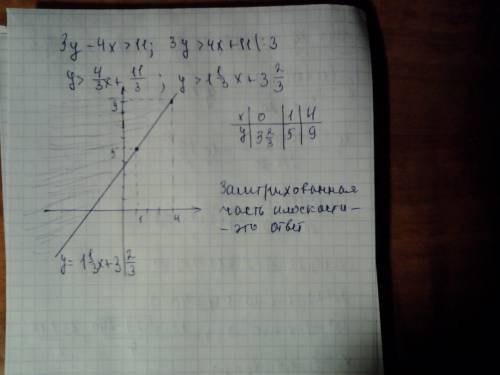 3y - 4x > 11; 3y > 4x + 11 | : 3
y > 4/3 x + 11/3 ; y > 1 1/3 x + 3 2/3
x | 0 | 1 | 4
y | 3 2/3 | 5 | 9
9
5
1 4
Заштрихованная
часть плоскости -
- это ответ
y = 1 1/3 x + 3 2/3